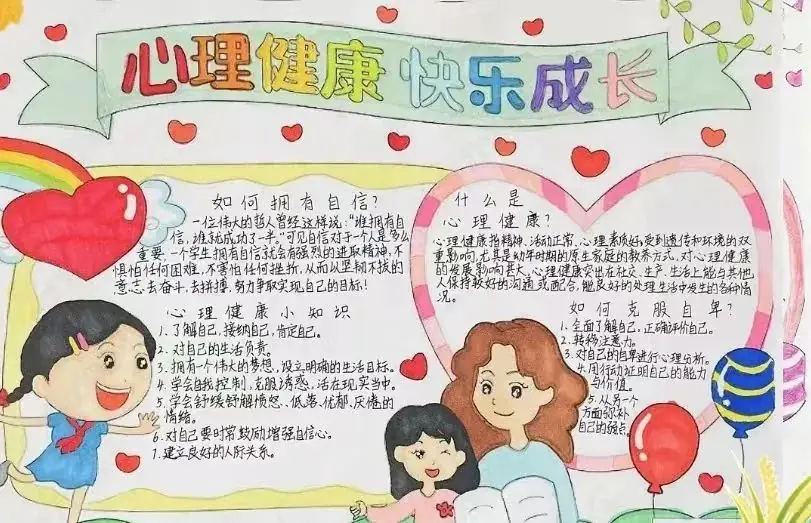 心理健康 快乐成长
如何拥有自信?
一位伟大的哲人曾经这样说:“谁拥有自
信,谁就成功了一半。”可见自信对于一个人是多么
重要,一个学生拥有自信就会有强烈的进取精神,不
惧怕任何困难,不害怕任何挫折,从而以坚韧不拔的
意志去奋斗、去拼搏,努力争取实现自己的目标!
心理健康小知识
1.了解自己,接纳自己,肯定自己。
2.对自己的生活负责。
3.拥有一个伟大的梦想,设立明确的生活目标。
4.学会自我控制、克服诱惑、活在现实当中。
5.学会舒缓纾解愤怒、低落、忧郁、厌倦的
情绪。
6.对自己要时常鼓励增强自信心。
7.建立良好的人际关系。
什么是
心理健康?
心理健康指精神、活动正常、心理素质好,受到遗传和环境的双
重影响,尤其是幼年时期的原生家庭的教养方式,对心理健康
的发展影响甚大,心理健康突出在社交、生产、生活上能与其他
人保持较好的沟通或配合,能良好的处理生活中发生的各种情
况。
如何克服自卑?
1.全面了解自己,正确评价自己。
2.转移注意力。
3.对自己的自卑进行心理分析。
4.用行动证明自己的能力
与价值。
5.从另一个
方面弥补
自己的弱点。